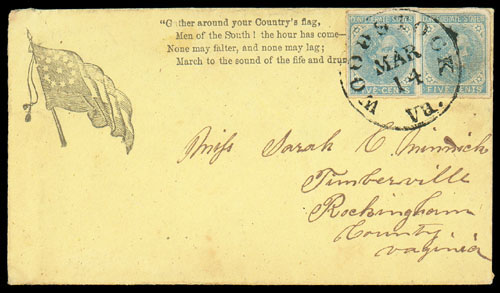 "Gather around your Country's flag,
Men of the South! the hour has come—
None may falter, and none may lag;
March to the sound of the fife and drum
CONFEDERATE STATES
CONFEDERATE STATES
FIVE CENTS
FIVE CENTS
WOODSTOCK
MAR
14
Va.
Miss Sarah C. Minnick
Timberville
Rockingham
County
Virginia